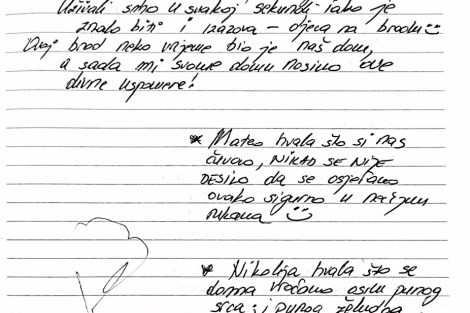 Uživali smo u svakoj sekundi iako je
znalo biti i izazova – djeca na brodu
Ovaj brod neko vrijeme bio je naš dom,
a sada mi svome domu nosimo ove
divne uspomene!
* Mateo hvala što si nas
čuvao, NIKAD SE NIJE
DESILO da se osjećamo
ovako sigurno u nečijim
rukama
* Nikolija hvala što se
doma vraćamo osim punog
srca i punog želudca